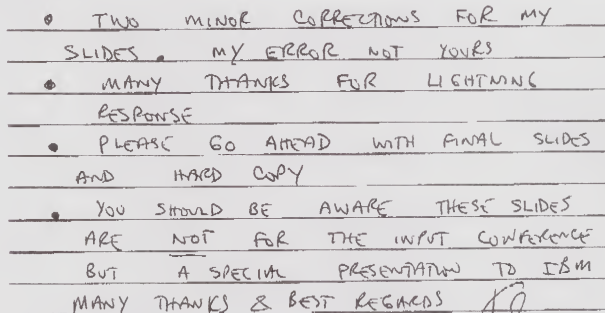 • TWO MINOR CORRECTIONS FOR MY
SLIDES. MY ERROR NOT YOURS
• MANY THANKS FOR LIGHTNING
RESPONSE
• PLEASE GO AHEAD WITH FINAL SLIDES
AND HARD COPY
• YOU SHOULD BE AWARE THESE SLIDES
ARE NOT FOR THE INPUT CONFERENCE
BUT A SPECIAL PRESENTATION TO IBM
MANY THANKS & BEST REGARDS